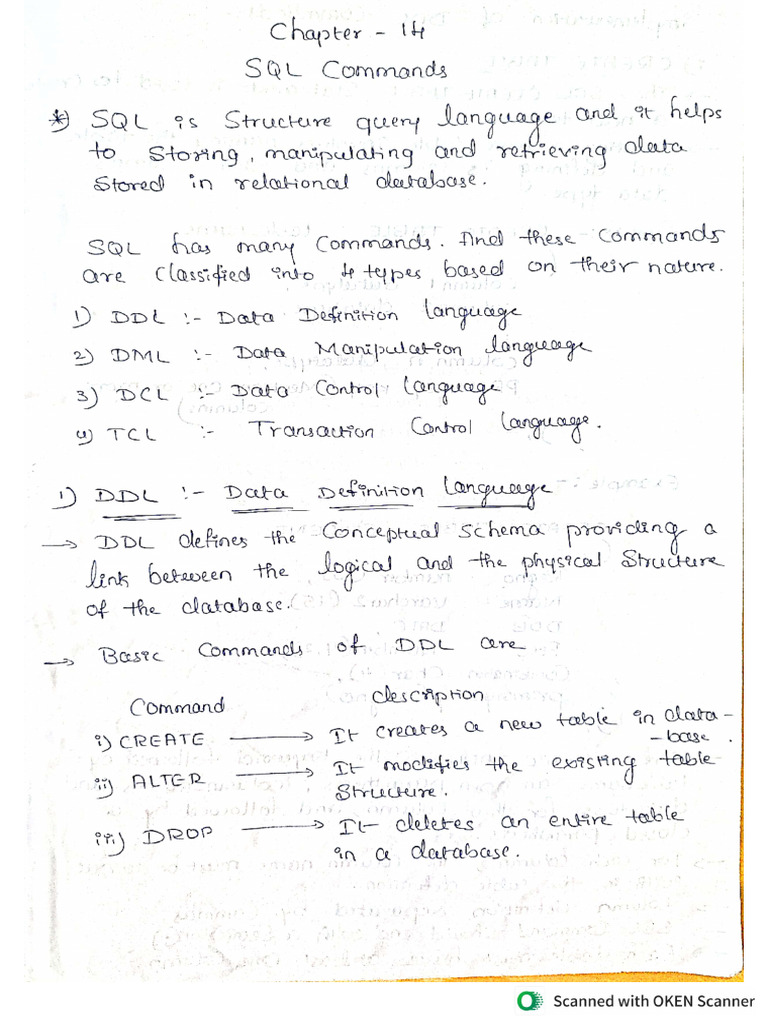 Chapter - 14
SQL Commands
*) SQL is Structure query language and it helps
to storing, manipulating and retrieving data
stored in relational database.
SQL has many Commands. And these commands
are classified into 4 types based on their nature.
1) DDL :- Data Definition Language
2) DML :- Data Manipulation language
3) DCL :- Data Control Language
4) TCL :- Transaction Control Language.
1) DDL :- Data Definition Language
→ DDL defines the Conceptual schema providing a
link between the logical and the physical Structure
of the database.
→ Basic Commands of DDL are
Command description
i) CREATE → It creates a new table in data-
-base.
ii) ALTER → It modifies the existing table
Structure.
iii) DROP → It deletes an entire table
in a database.
Scanned with OKEN Scanner